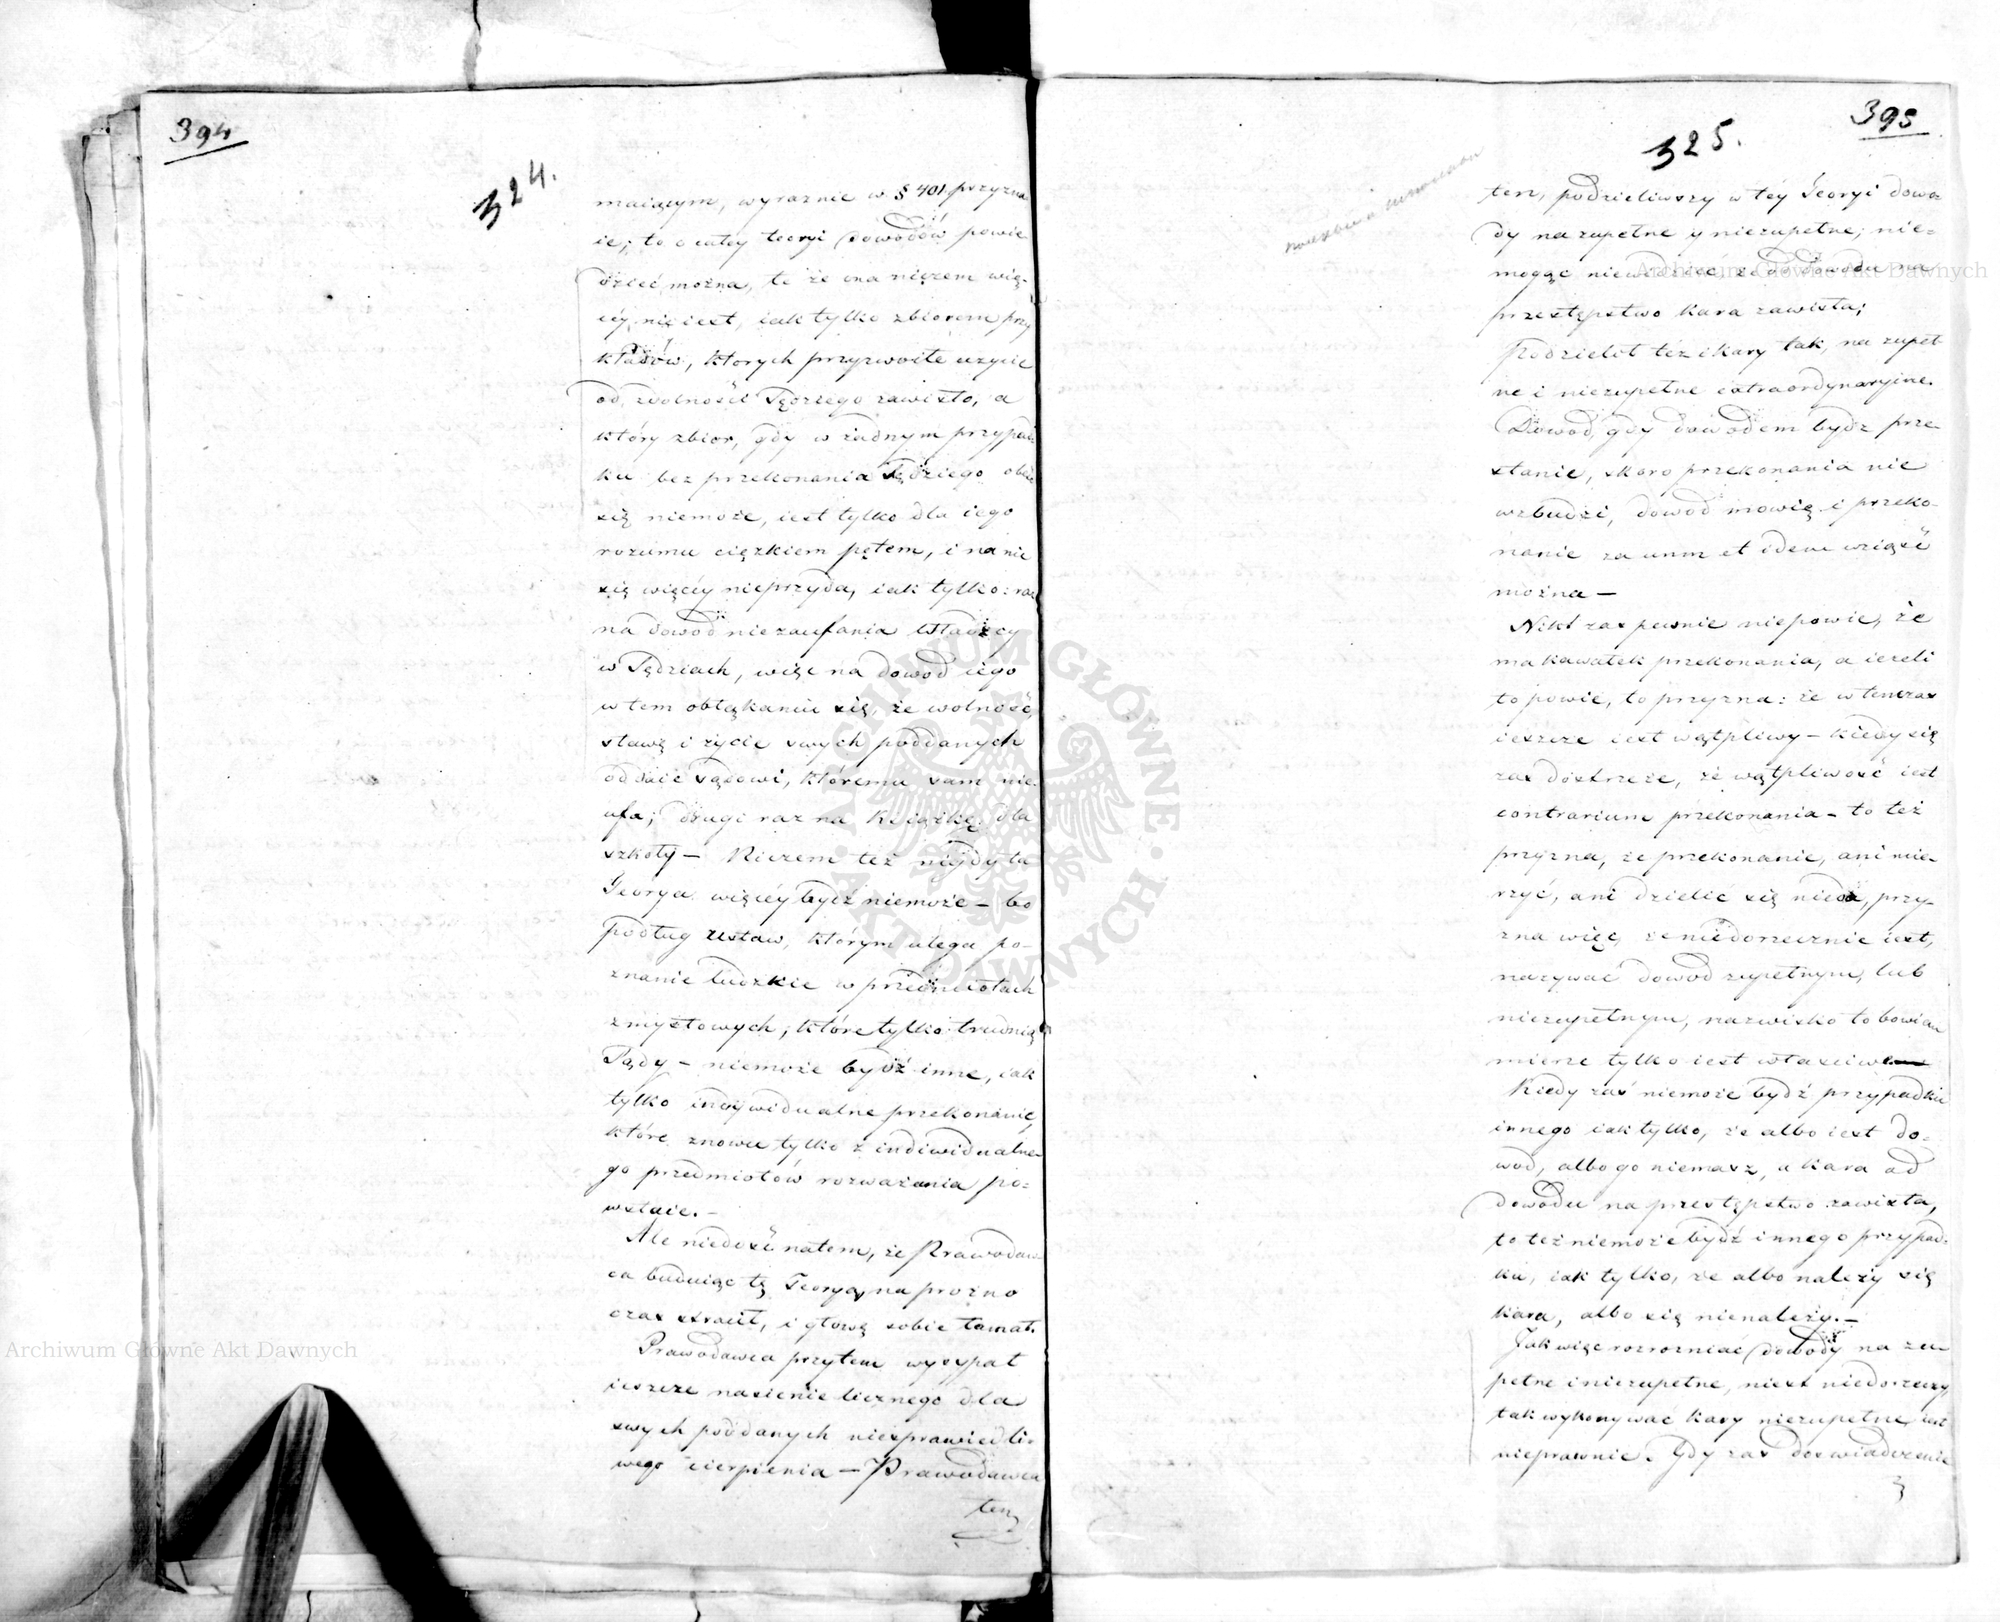 394
324.
maiącym, wyraznie w § 401 przyzna
ie; to o całey teoryi dowodów powie
dzieć można, to że ona niczem wię-
céy nie iest, iak tylko zbiorem przy
kładów, ktorych przyzwoite uzycie
od zdolności Sędziego zawisło, a
który zbior, gdy w żadnym przypad
ku bez przekonania Sędziego obeiść
się niemoże, iest tylko dla iego
rozumu ciężkiem pętem, i na nic
się więcéy nieprzyda, iak tylko: raz
na dowód niezaufania Władzcy
w Sędziach, więc na dowód iego
w tem obłąkaniu się, że wolność,
sławę i życie swych poddanych
oddaie sądowi, któremu sam nie
ufa; drugi raz na książkę dla
szkoły — Niczem też nigdy ta
Teorya więcéy bydź niemoże — bo
podług ustaw, którym ulega po-
znanie ludzkie w przedmiotach
zmysłowych, które tylko trudnią
Sądy — niemoże bydź inne, iak
tylko indywidualne przekonanie,
które znowu tylko z indiwidualne
go przedmiotów rozważania po-
wstaie. —
Ale niedość natem, że Prawodaw
ca buduiąc tę Teoryą, na prożno
czas stracił, i głowę sobie łamał.
Prawodawca przytem wysypał
ieszcze nasienie licznego dla
swych poddanych niesprawiedli-
wego cierpienia — Prawodawca
ten
395
325.
ten, podzieliwszy w téy Teoryi dowo-
dy na zupełne y niezupełne; nie-
mogąc niewidzieć że od dowodu na
przestępstwo kara zawisła;
Podzielił też i kary tak, na zupeł
ne i niezupełne extraordynaryine.
Dowód, gdy dowodem bydz prze-
stanie, skoro przekonania nie
wzbudzi, dowód mowię i przeko-
nanie za unum et idem wziąść
można —
Nikt zas pewnie niepowie, że
ma kawałek przekonania, a ieżeli
to powie, to przyzna: że w tenczas
ieszcze iest wątpliwy — kiedy się
zas dostrzeże, że wątpliwość iest
contrarium przekonania — to też
przyzna, że przekonanie, ani mie-
rzyć, ani dzielic się nieda, przy-
zna więc, że niedorzecznie iest,
nazywać dowod zupełnym, lub
niezupełnym, nazwisko to bowiem
mierze tylko iest właściwe
Kiedy zaś niemoże bydź przypadku
innego iak tylko, że albo iest do-
wod, albo go niemasz, a kara od
dowodu na przestępstwo zawisła,
to też niemoże bydź innego przypad-
ku, iak tylko, że albo należy się
kara, albo się nienależy. —
Jak więc rozrozniać dowody na zu-
pełne i niezupełne, iest niedorzeczy,
tak wykonywać kary niezupełne iest
nieprawnie. Gdy zas doswiadczenie
Archiwum Główne Akt Dawnych
Archiwum Główne Akt Dawnych
ARCHIWUM GŁÓWNE
AKT DAWNYCH